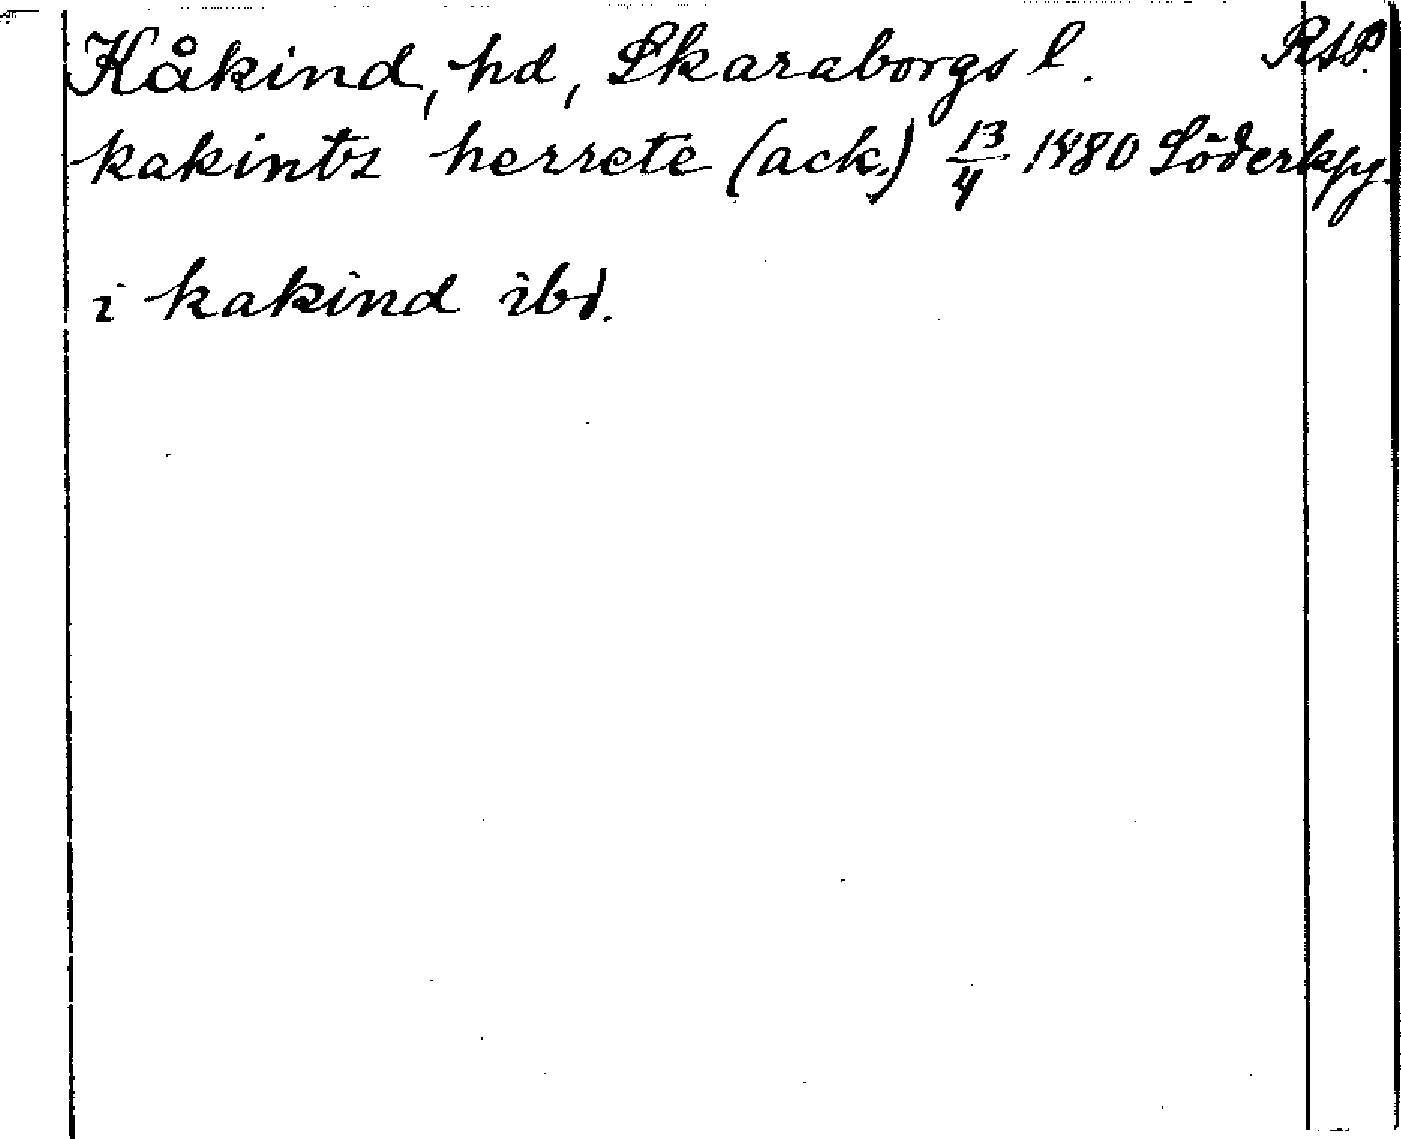 Kåkind, hd, Skaraborgs l. RAP.
kakintz herrete (ack.) 13/4 1480 Söderkpg.
i kakind ibd.